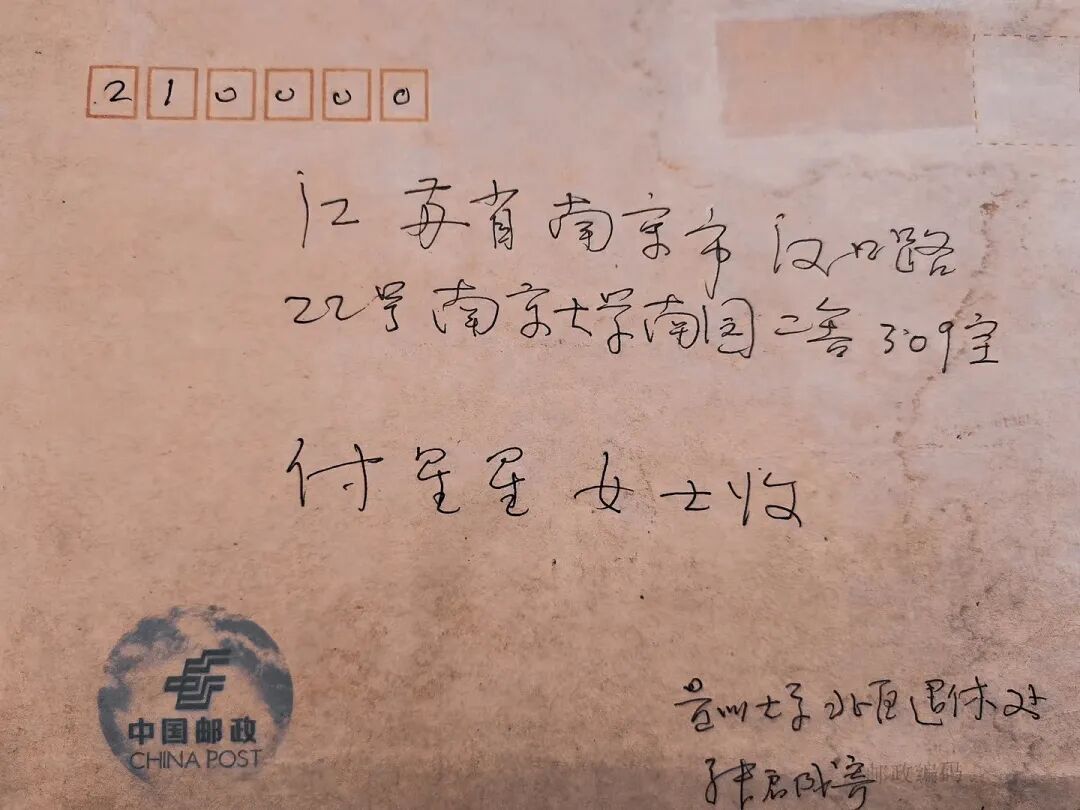 210000
江苏省南京市汉口路
22号南京大学南园二舍309室
付星星女士收
贵州大学北区退休处
张君寄
邮政编码
中国邮政
CHINA POST